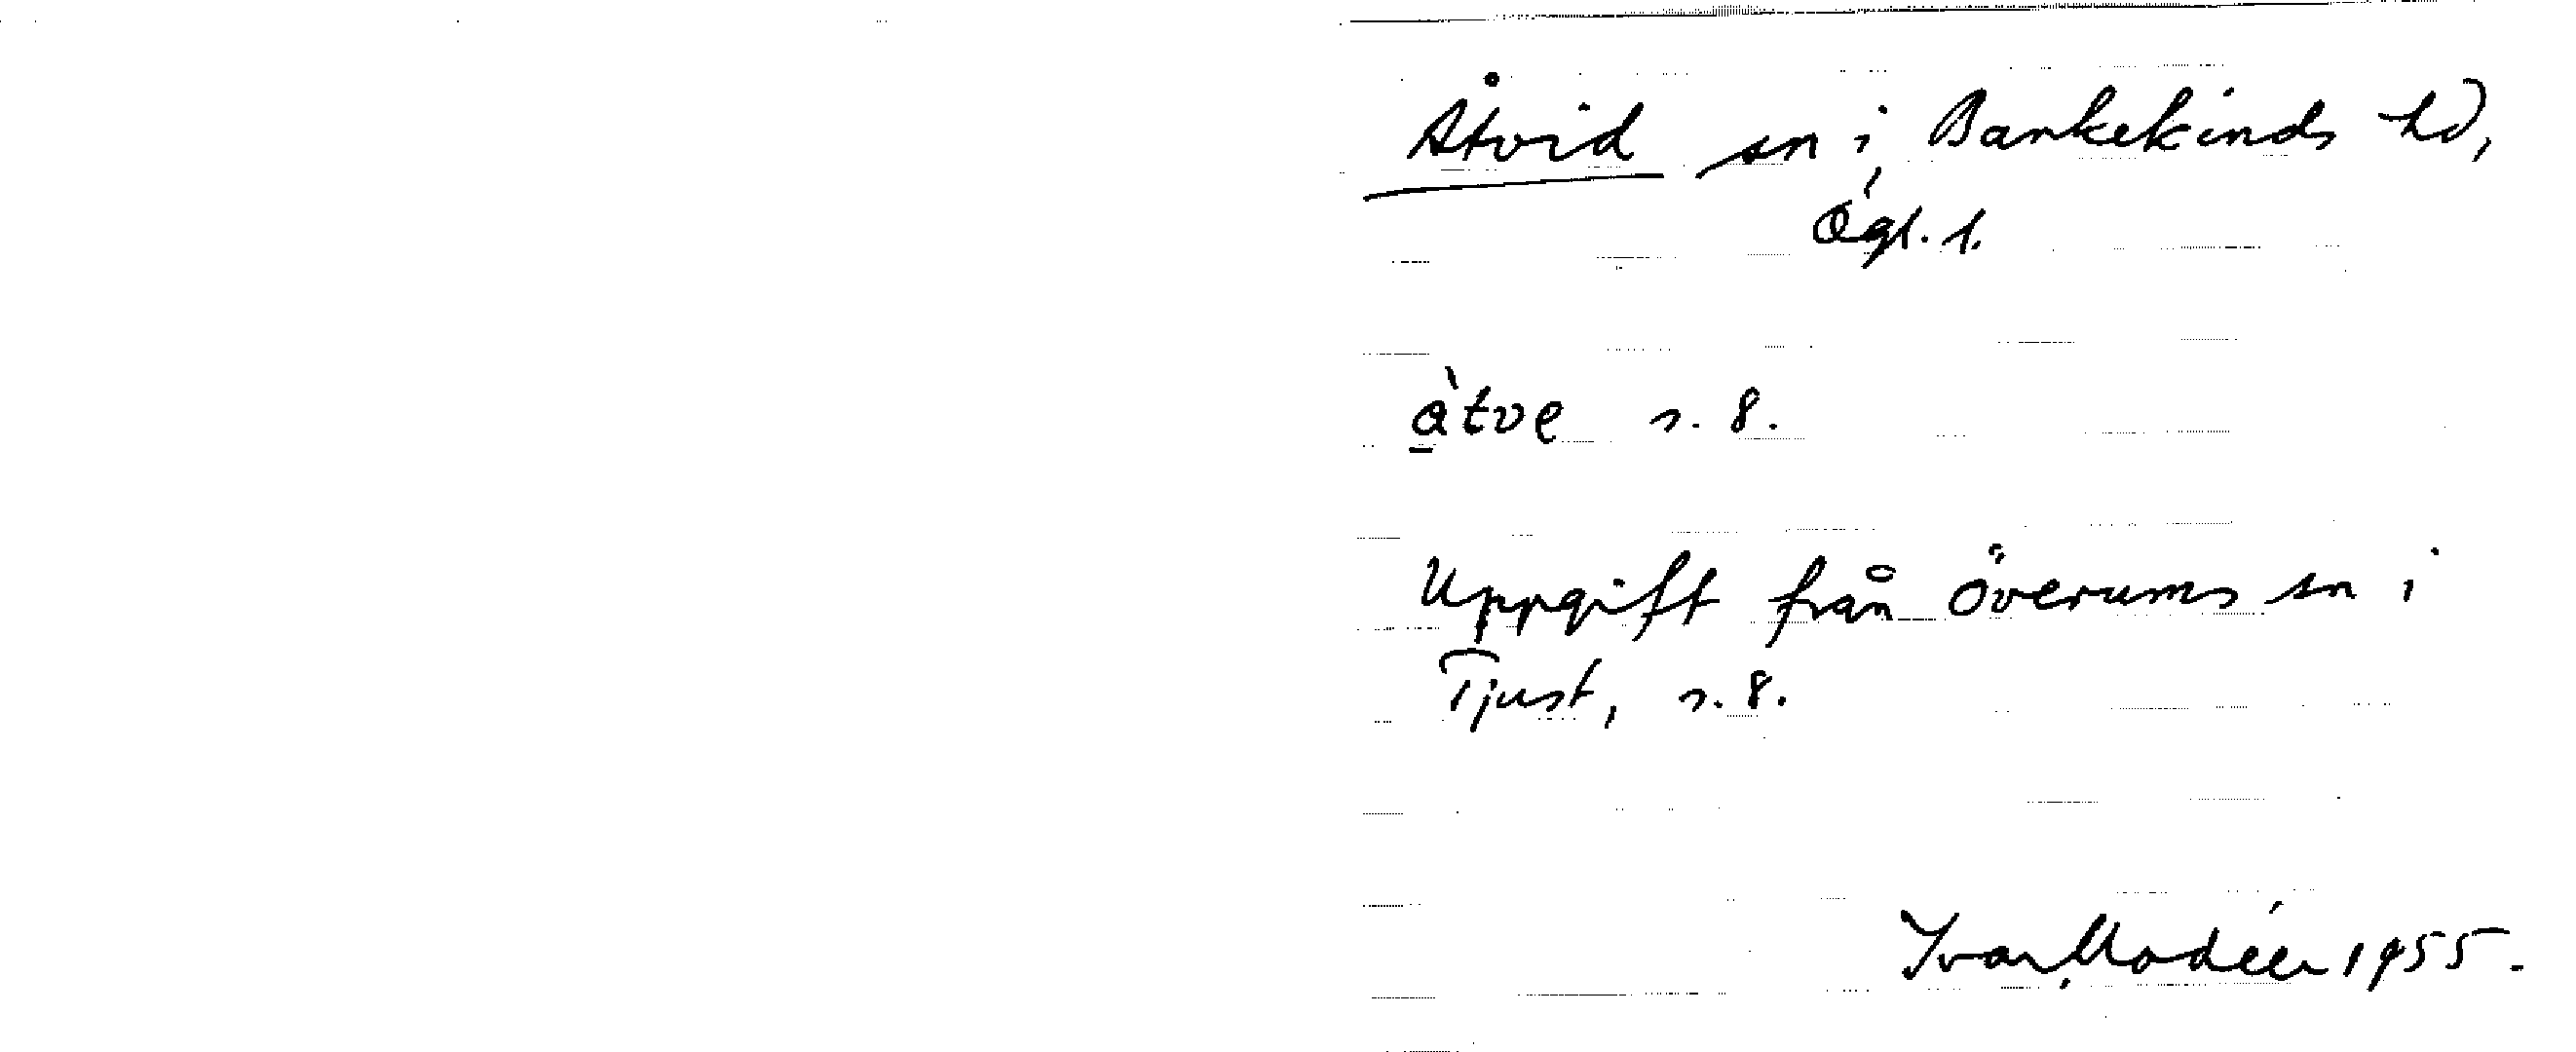 Åtvid sn i Bankekinds hd,
Ögl. l.
à̲tve s. 8.
Uppgift från Överums sn i
Tjust, s. 8.
Ivar Modéer 1955.